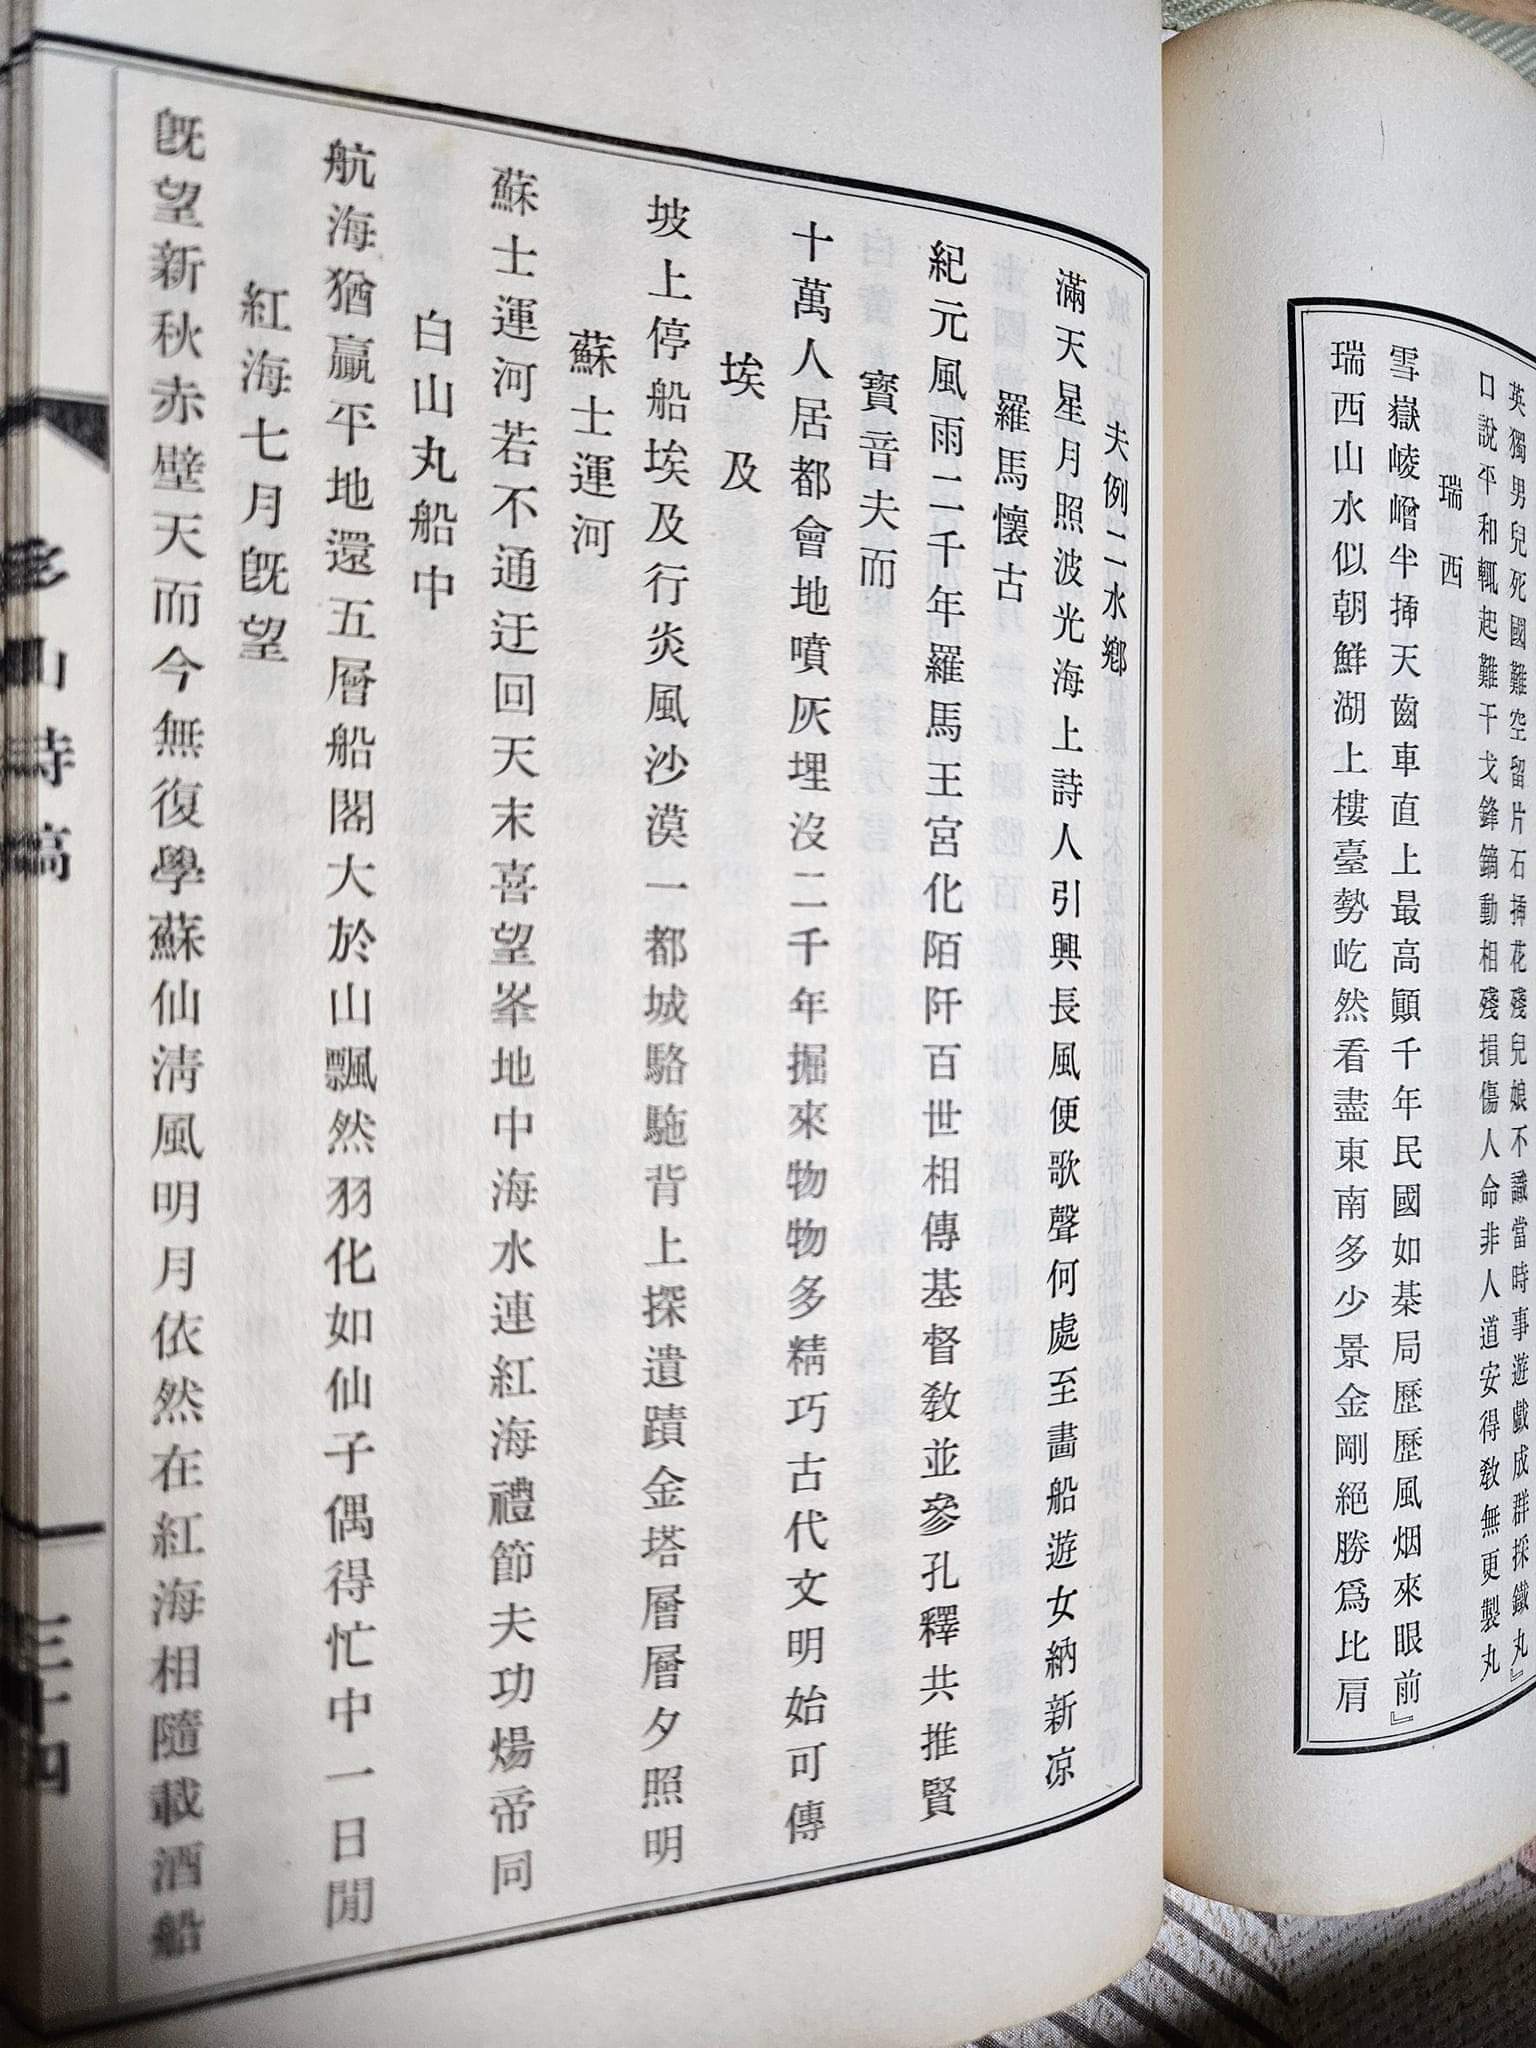 英獨男兒死國難空留片石揷花殘兒娘不識當時事遊戲成群採鐵丸』
口說平和輒起難干戈鋒鏑動相殘損傷人命非人道安得敎無更製丸
瑞西
雪嶽崚嶒半揷天齒車直上最高顚千年民國如棊局歷歷風烟來眼前』
瑞西山水似朝鮮湖上樓臺勢屹然看盡東南多少景金剛絕勝爲比肩
夫例二水鄕
滿天星月照波光海上詩人引興長風便歌聲何處至畵船遊女納新凉
羅馬懷古
紀元風雨二千年羅馬王宮化陌阡百世相傳基督敎並參孔釋共推賢
寶音夫而
十萬人居都會地噴灰埋沒二千年掘來物物多精巧古代文明始可傳
埃及
坡上停船埃及行炎風沙漠一都城駱駞背上探遺蹟金塔層層夕照明
蘇士運河
蘇士運河若不通迂回天末喜望峯地中海水連紅海禮節夫功煬帝同
白山丸船中
航海猶贏平地還五層船閣大於山飄然羽化如仙子偶得忙中一日閒
紅海七月旣望
旣望新秋赤壁天而今無復學蘇仙淸風明月依然在紅海相隨載酒船
山詩稿
三十四